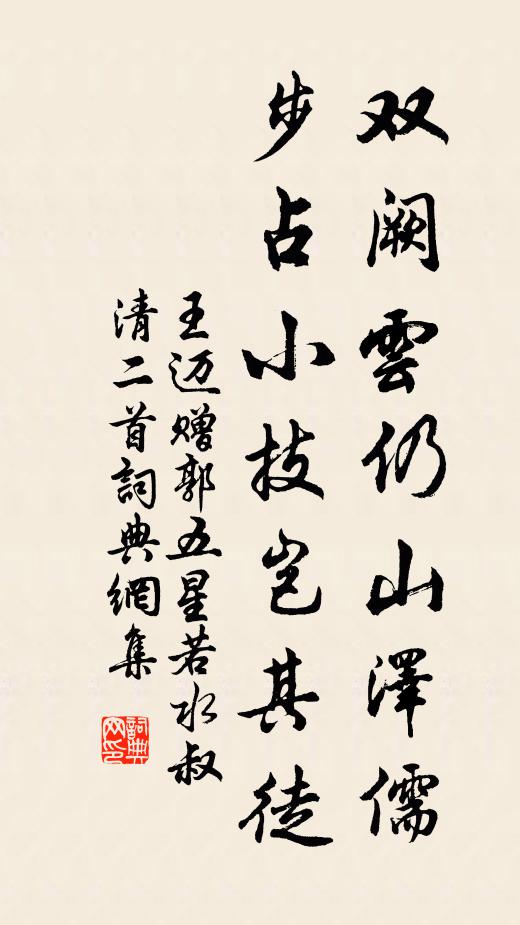 双阙雲仍山澤儒
步占小技岂其徒
王迈赠郭五星若水叔
清二首詞典網集
詞典网印